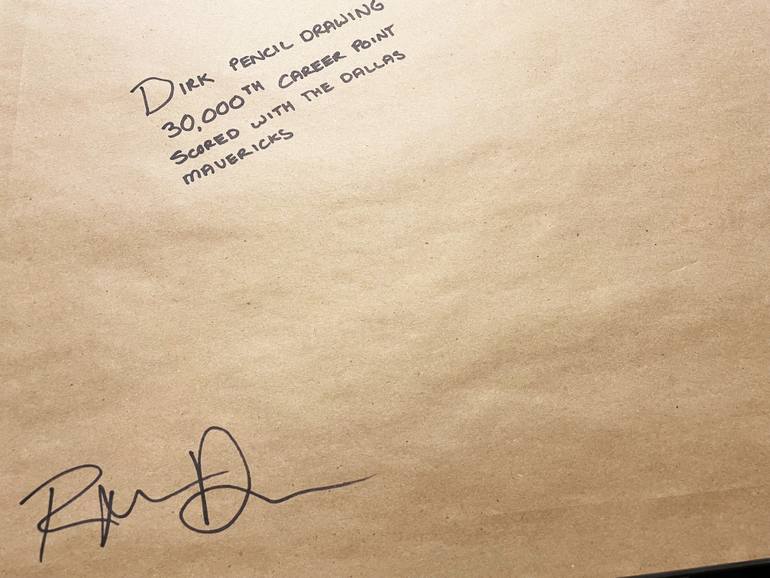 DIRK PENCIL DRAWING
30,000TH CAREER POINT
SCORED WITH THE DALLAS
MAVERICKS